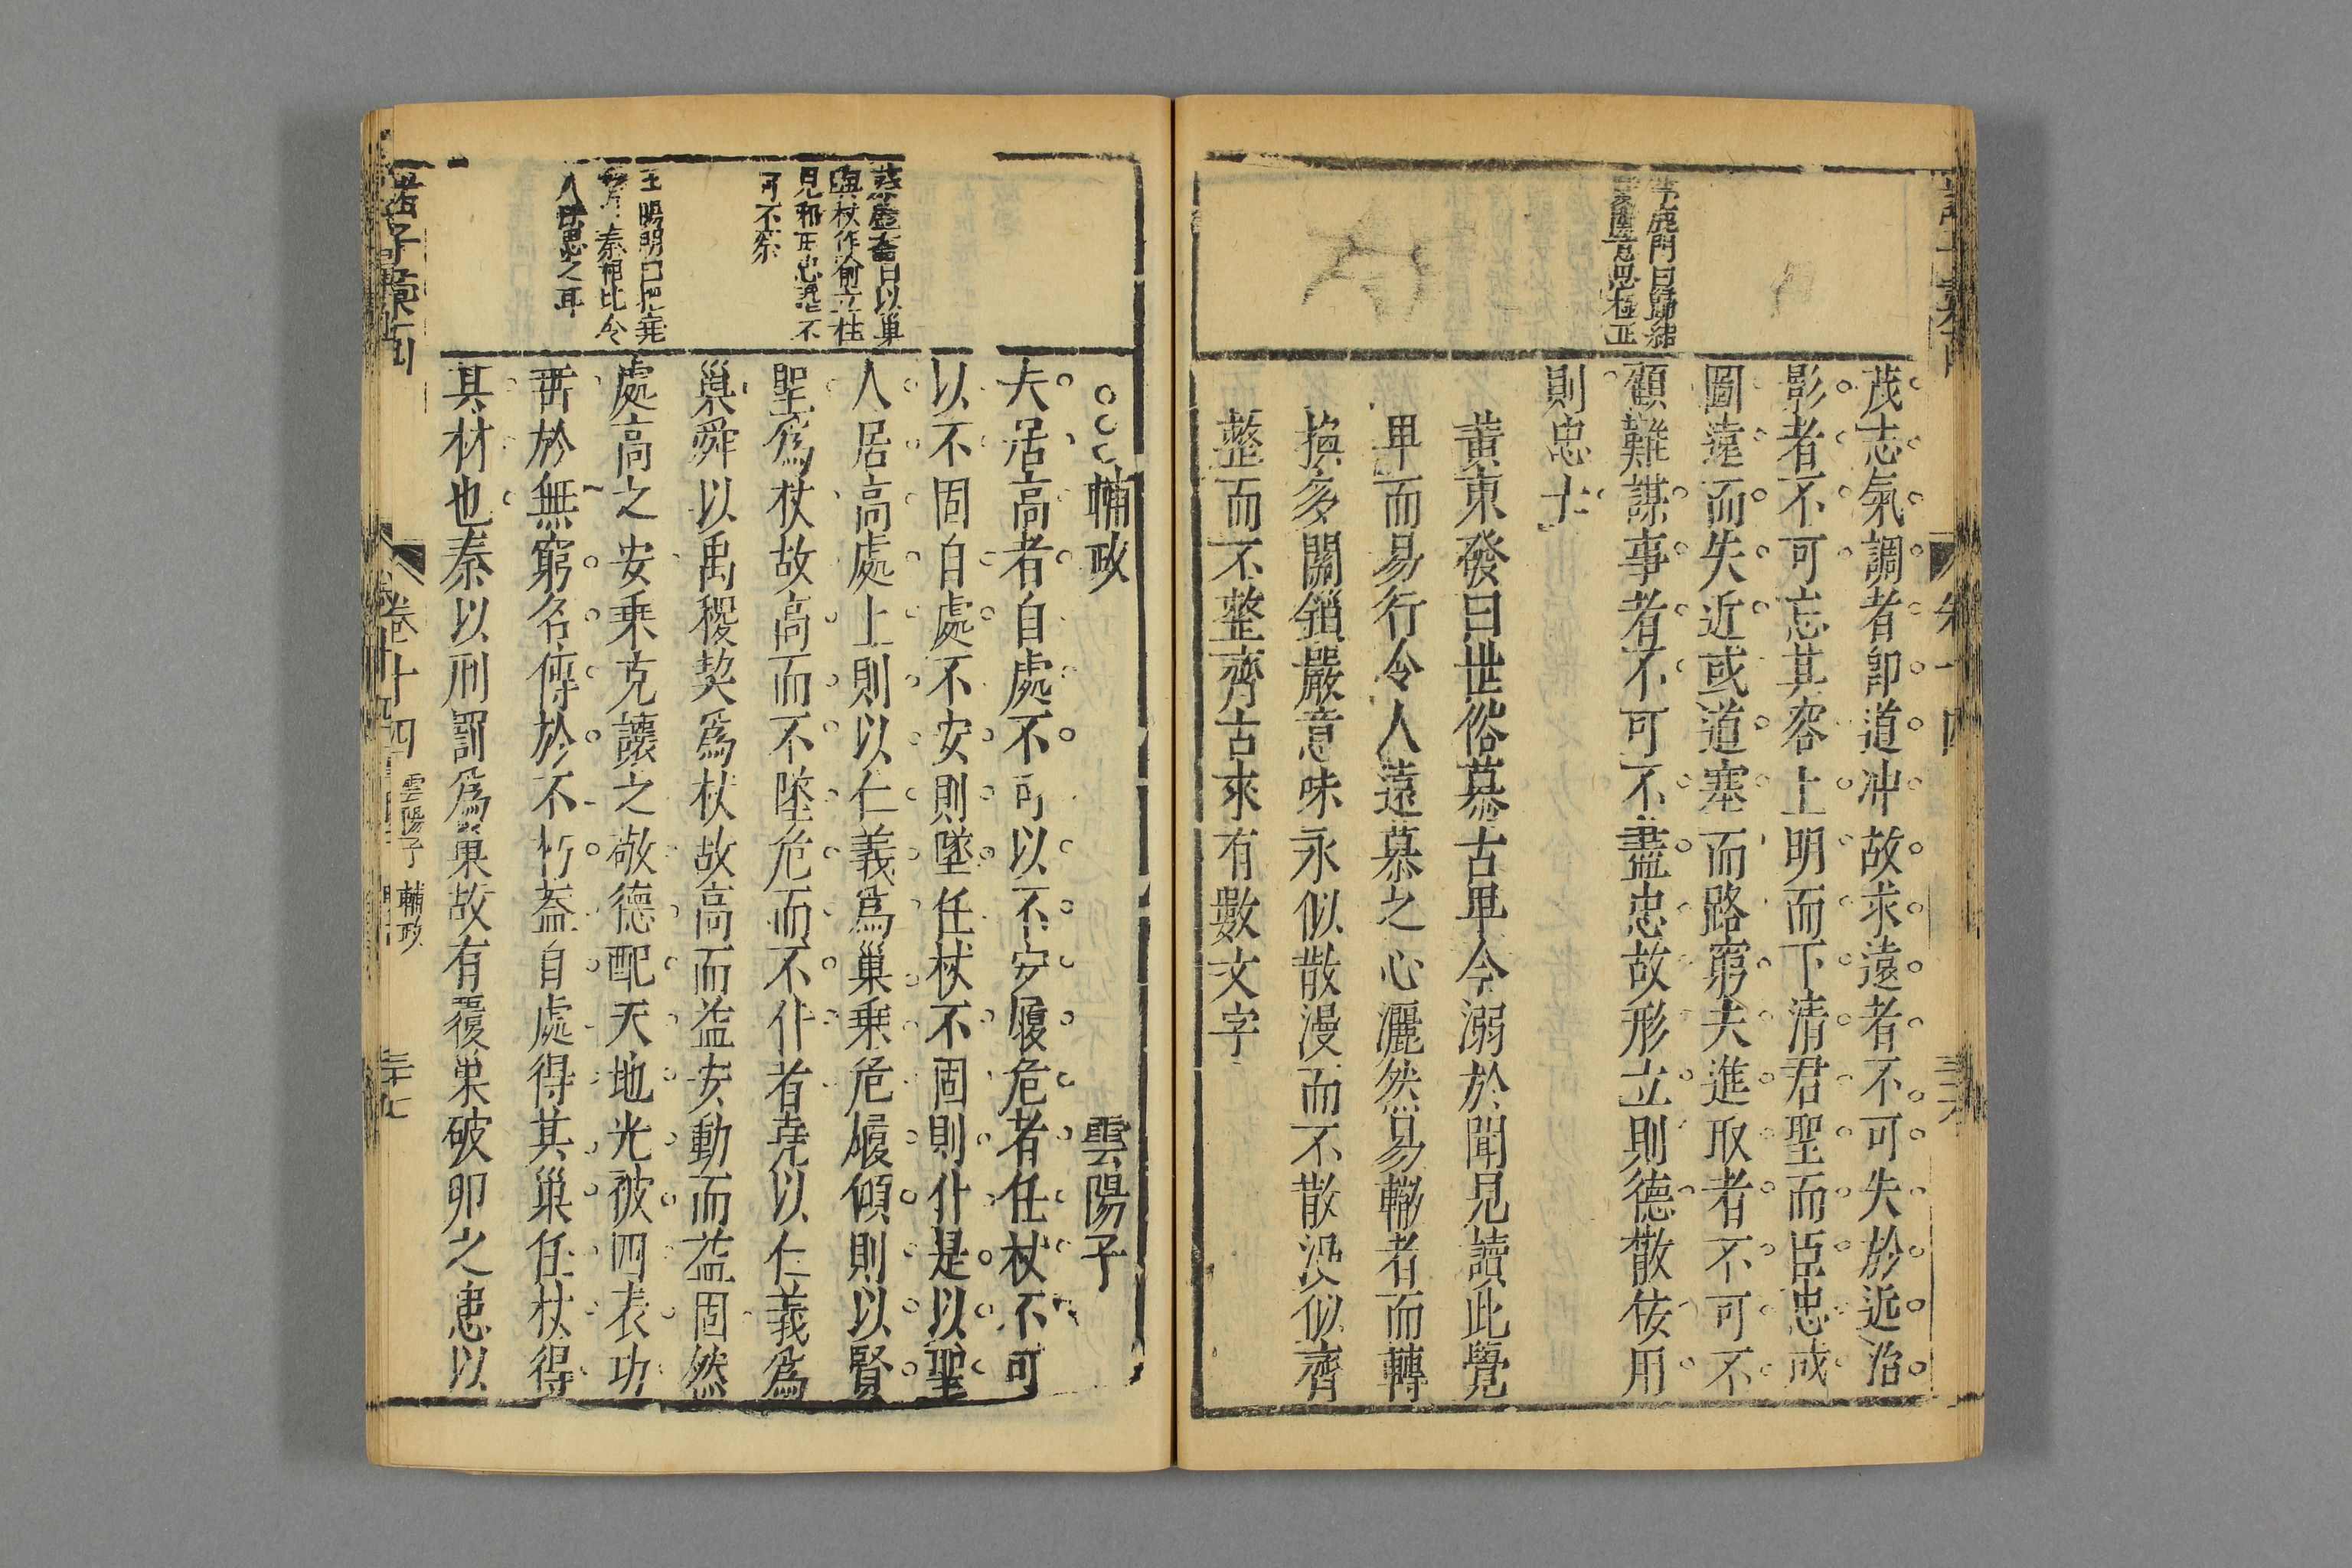 茅鹿門曰歸結
茂志氣調者卽道冲故求遠者不可失於近治
影者不可忘其容上明而下清君聖而臣忠或
圖遠而失近或道塞而路窮夫進取者不可不
顧難謀事者不可不盡忠故形立則德散佞用
則忠亡
黃東發曰世俗慕古卑今溺於聞見讀此覺
卑而易行令人遠慕之心灑然易轍者而轉
換多關鎖嚴意味永似散漫而不散漫似齊
整而不整齊古來有數文字
輔政
雲陽子
曰以巢
與杖作喻立柱
見邪正忠讒不
可不察
夫居高者自處不可以不安履危者任杖不可
以不固自處不安則墜任杖不固則仆是以聖
人居高處上則以仁義爲巢乗危履傾則以賢
聖爲杖故高而不墜危而不仆者堯以仁義爲
巢舜以禹稷契爲杖故高而益安動而益固然
王陽明曰把堯
舜秦相比令
人思之耳
處高之安乗克讓之敬德配天地光彼四表功
垂於無窮名傳於不朽葢自處得其巢任杖得
其材也秦以刑罰爲巢故有覆巢破卵之患以
諸子彙函
卷十四
雲陽子 輔政
三十七